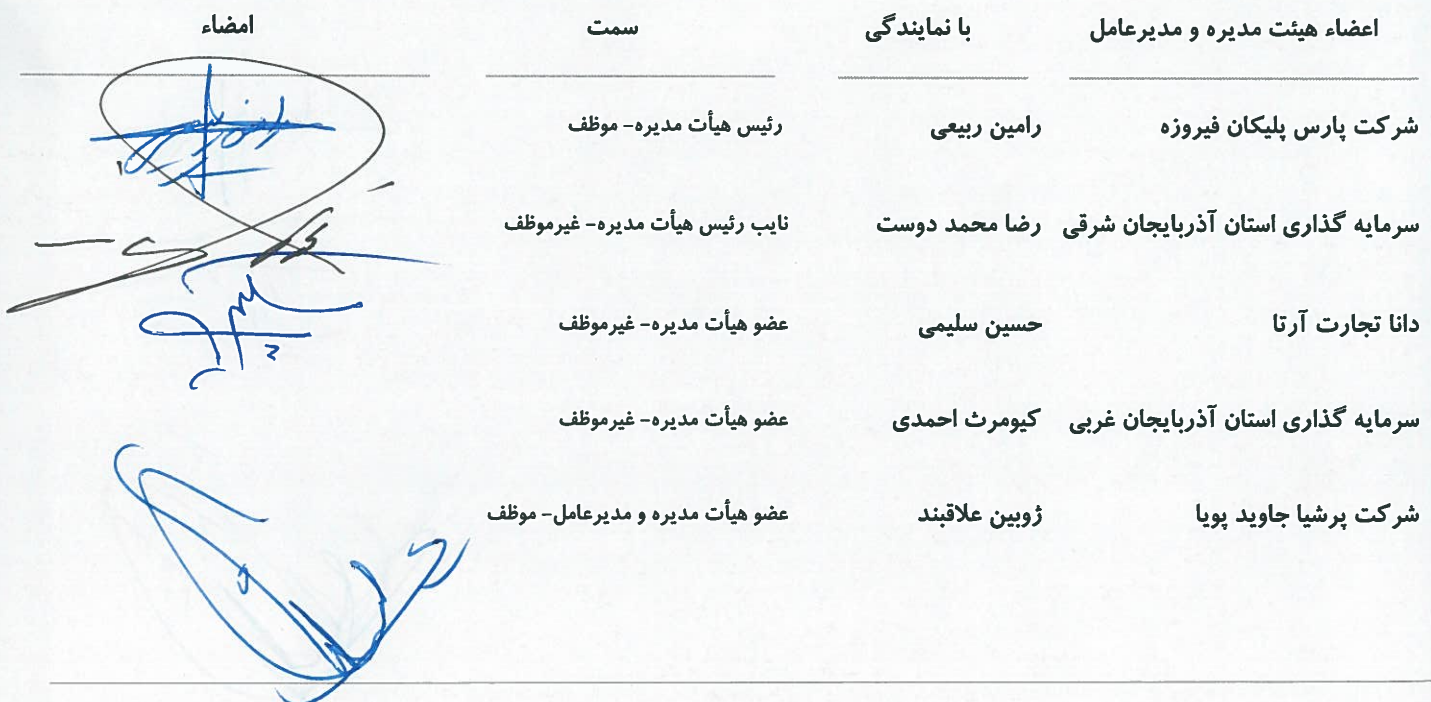 اعضاء هیئت مدیره و مدیرعامل با نمایندگی سمت امضاء
شرکت پارس پلیکان فیروزه رامین ربیعی رئیس هیأت مدیره- موظف
سرمایه گذاری استان آذربایجان شرقی رضا محمد دوست نایب رئیس هیأت مدیره- غیرموظف
دانا تجارت آرتا حسین سلیمی عضو هیأت مدیره- غیرموظف
سرمایه گذاری استان آذربایجان غربی کیومرث احمدی عضو هیأت مدیره- غیرموظف
شرکت پرشیا جاوید پویا ژوبین علاقبند عضو هیأت مدیره و مدیرعامل- موظف